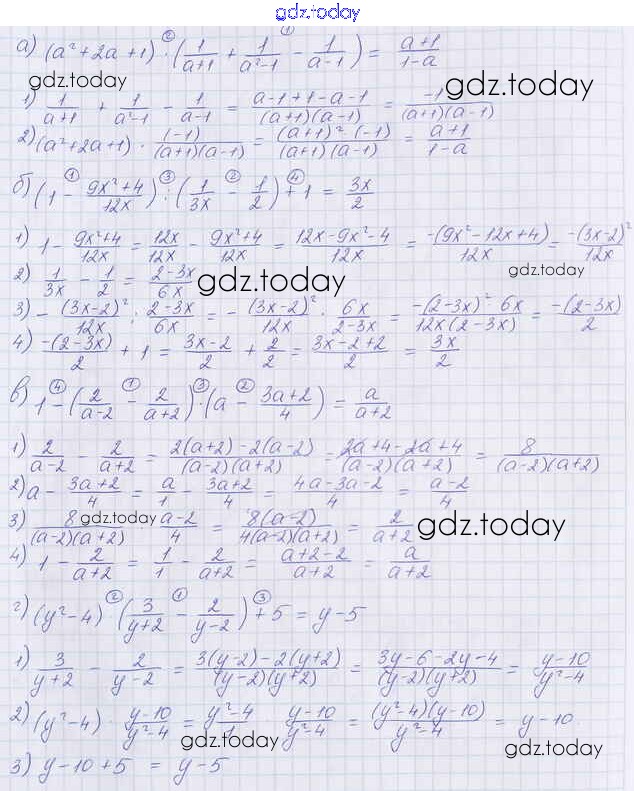 gdz.today
а) (a²+2a+1)·(1/(a+1) + 1/(a²-1) - 1/(a-1)) = (a+1)/(1-a)
gdz.today gdz.today
1) 1/(a+1) + 1/(a²-1) - 1/(a-1) = (a-1+1-a-1)/((a+1)(a-1)) = -1/((a+1)(a-1))
2) (a²+2a+1) · (-1)/((a+1)(a-1)) = ((a+1)²(-1))/((a+1)(a-1)) = (a+1)/(1-a)
б) (1 - (9x²+4)/12x) : (1/3x - 1/2) + 1 = 3x/2
1) 1 - (9x²+4)/12x = 12x/12x - (9x²+4)/12x = (12x-9x²-4)/12x = -(9x²-12x+4)/12x = -(3x-2)²/12x
gdz.today
2) 1/3x - 1/2 = (2-3x)/6x
gdz.today
3) - (3x-2)²/12x : (2-3x)/6x = - (3x-2)²/12x · 6x/(2-3x) = -(2-3x)²·6x/(12x(2-3x)) = -(2-3x)/2
4) -(2-3x)/2 + 1 = (3x-2)/2 + 2/2 = (3x-2+2)/2 = 3x/2
в) 1 - (2/(a-2) - 2/(a+2))·(a - (3a+2)/4) = a/(a+2)
1) 2/(a-2) - 2/(a+2) = (2(a+2)-2(a-2))/((a-2)(a+2)) = (2a+4-2a+4)/((a-2)(a+2)) = 8/((a-2)(a+2))
2) a - (3a+2)/4 = a/1 - (3a+2)/4 = (4a-3a-2)/4 = (a-2)/4
3) 8/((a-2)(a+2)) (a-2)/4 = 8(a-2)/(4(a-2)(a+2)) = 2/(a+2)
gdz.today gdz.today
4) 1 - 2/(a+2) = 1/1 - 2/(a+2) = (a+2-2)/(a+2) = a/(a+2)
г) (y²-4) (3/(y+2) - 2/(y-2)) + 5 = y-5
1) 3/(y+2) - 2/(y-2) = (3(y-2)-2(y+2))/((y-2)(y+2)) = (3y-6-2y-4)/((y-2)(y+2)) = (y-10)/(y²-4)
2) (y²-4) · (y-10)/(y²-4) = (y²-4)/1 · (y-10)/(y²-4) = ((y²-4)(y-10))/(y²-4) = y-10
gdz.today gdz.today
3) y-10+5 = y-5